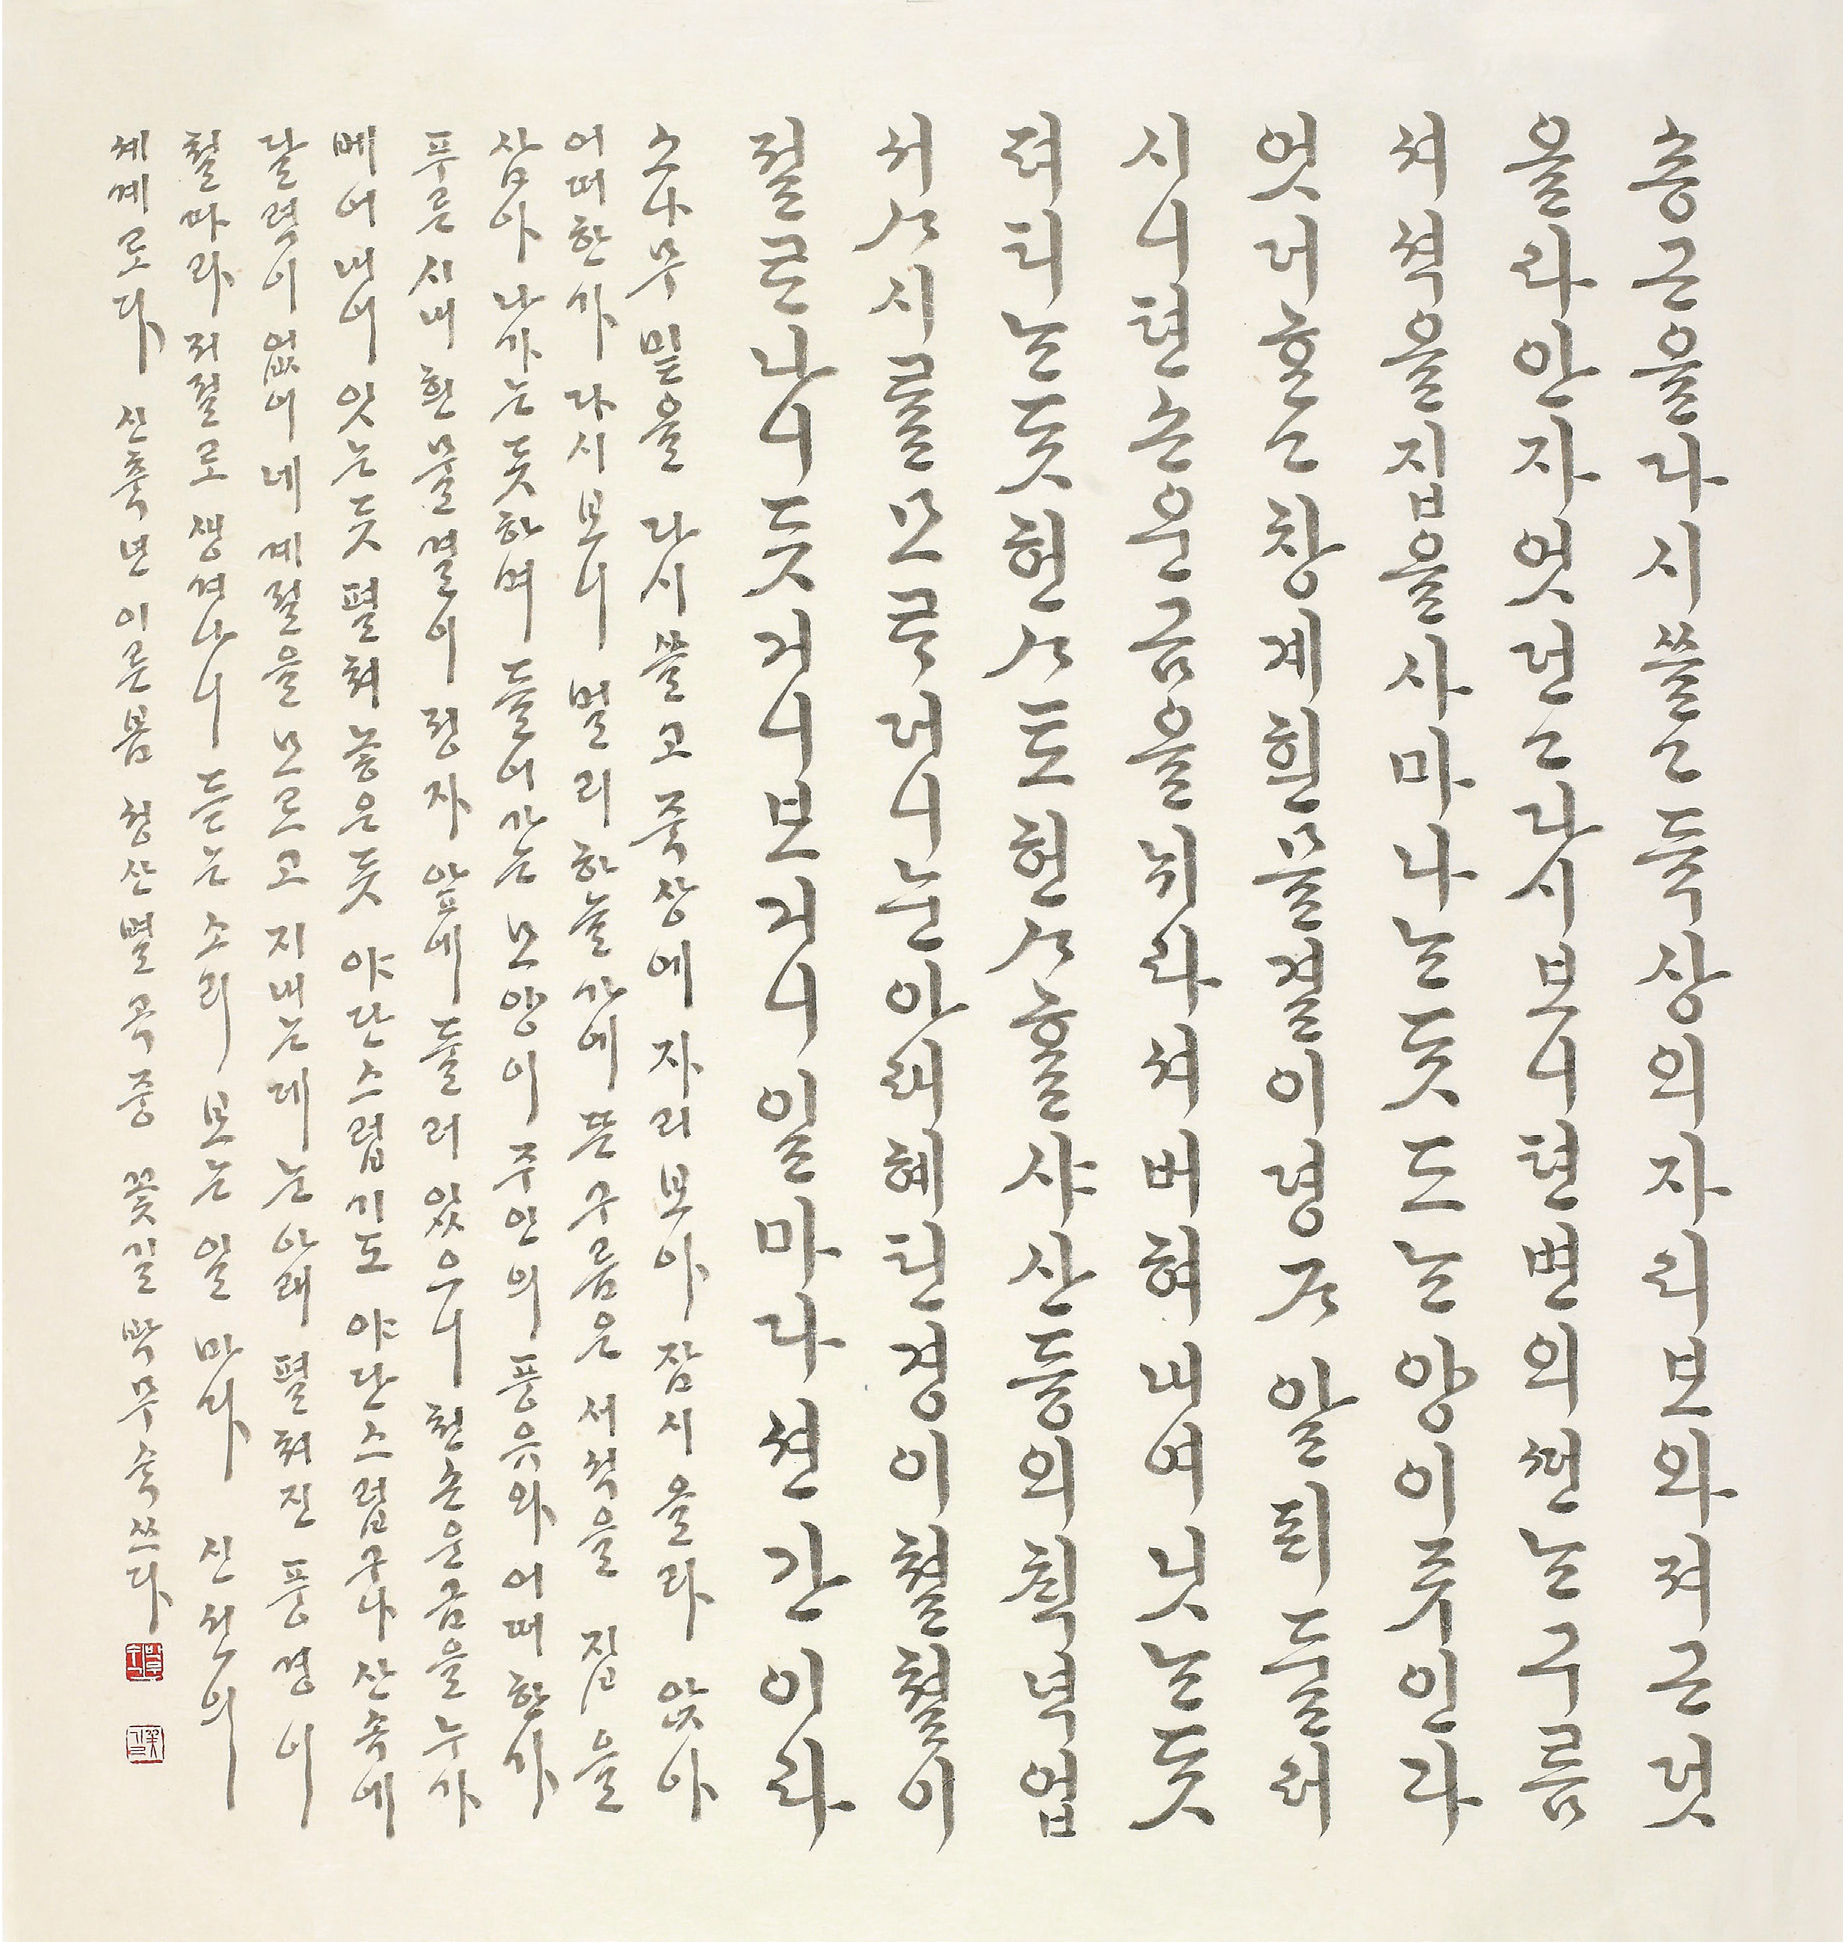 숑근을다시쓸고듁상의자리보와져근덧
올라안자엇던고다시보니텬변의떤는구름
셔셕을집을사마나는듯드는양이쥬인과
엇더ᄒᆞᆫ고창계흰믈결이뎡ᄌᆞ알픠둘러
시니텬손운금을뉘라셔버혀내여닛는듯
펴티는듯헌ᄉᆞ도헌ᄉᆞᄒᆞᆯ샤산듕의ᄎᆡᆨ녁업
서ᄉᆞ시를모르더니눈아래헤틴경이쳘쳘이
절로나니듯거니보거니일마다션간이라
소나무 밑을 다시 쓸고 죽상에 자리 보아 잠시 올라 앉아
어떠한가 다시 보니 멀리 하늘가에 뜬구름은 서석을 집을
삼아 나가는듯하며 들어가는 모양이 주인의 풍유와 어떠한가
푸른 시내 흰물결이 정자 앞에 둘러 있으니 천손운금을 누가
베어내어 잇는듯 펼쳐놓은듯 야단스럽기도 야단스럽구나 산속에
달력이 없어 네 계절을 모르고 지내는데 눈아래 펼쳐진 풍경이
철따라 저절로 생겨나니 듣는 소리 보는 일 마다 신선의
세계로다 신축년 이른봄 성산별곡 중 꽃길 박무숙 쓰다